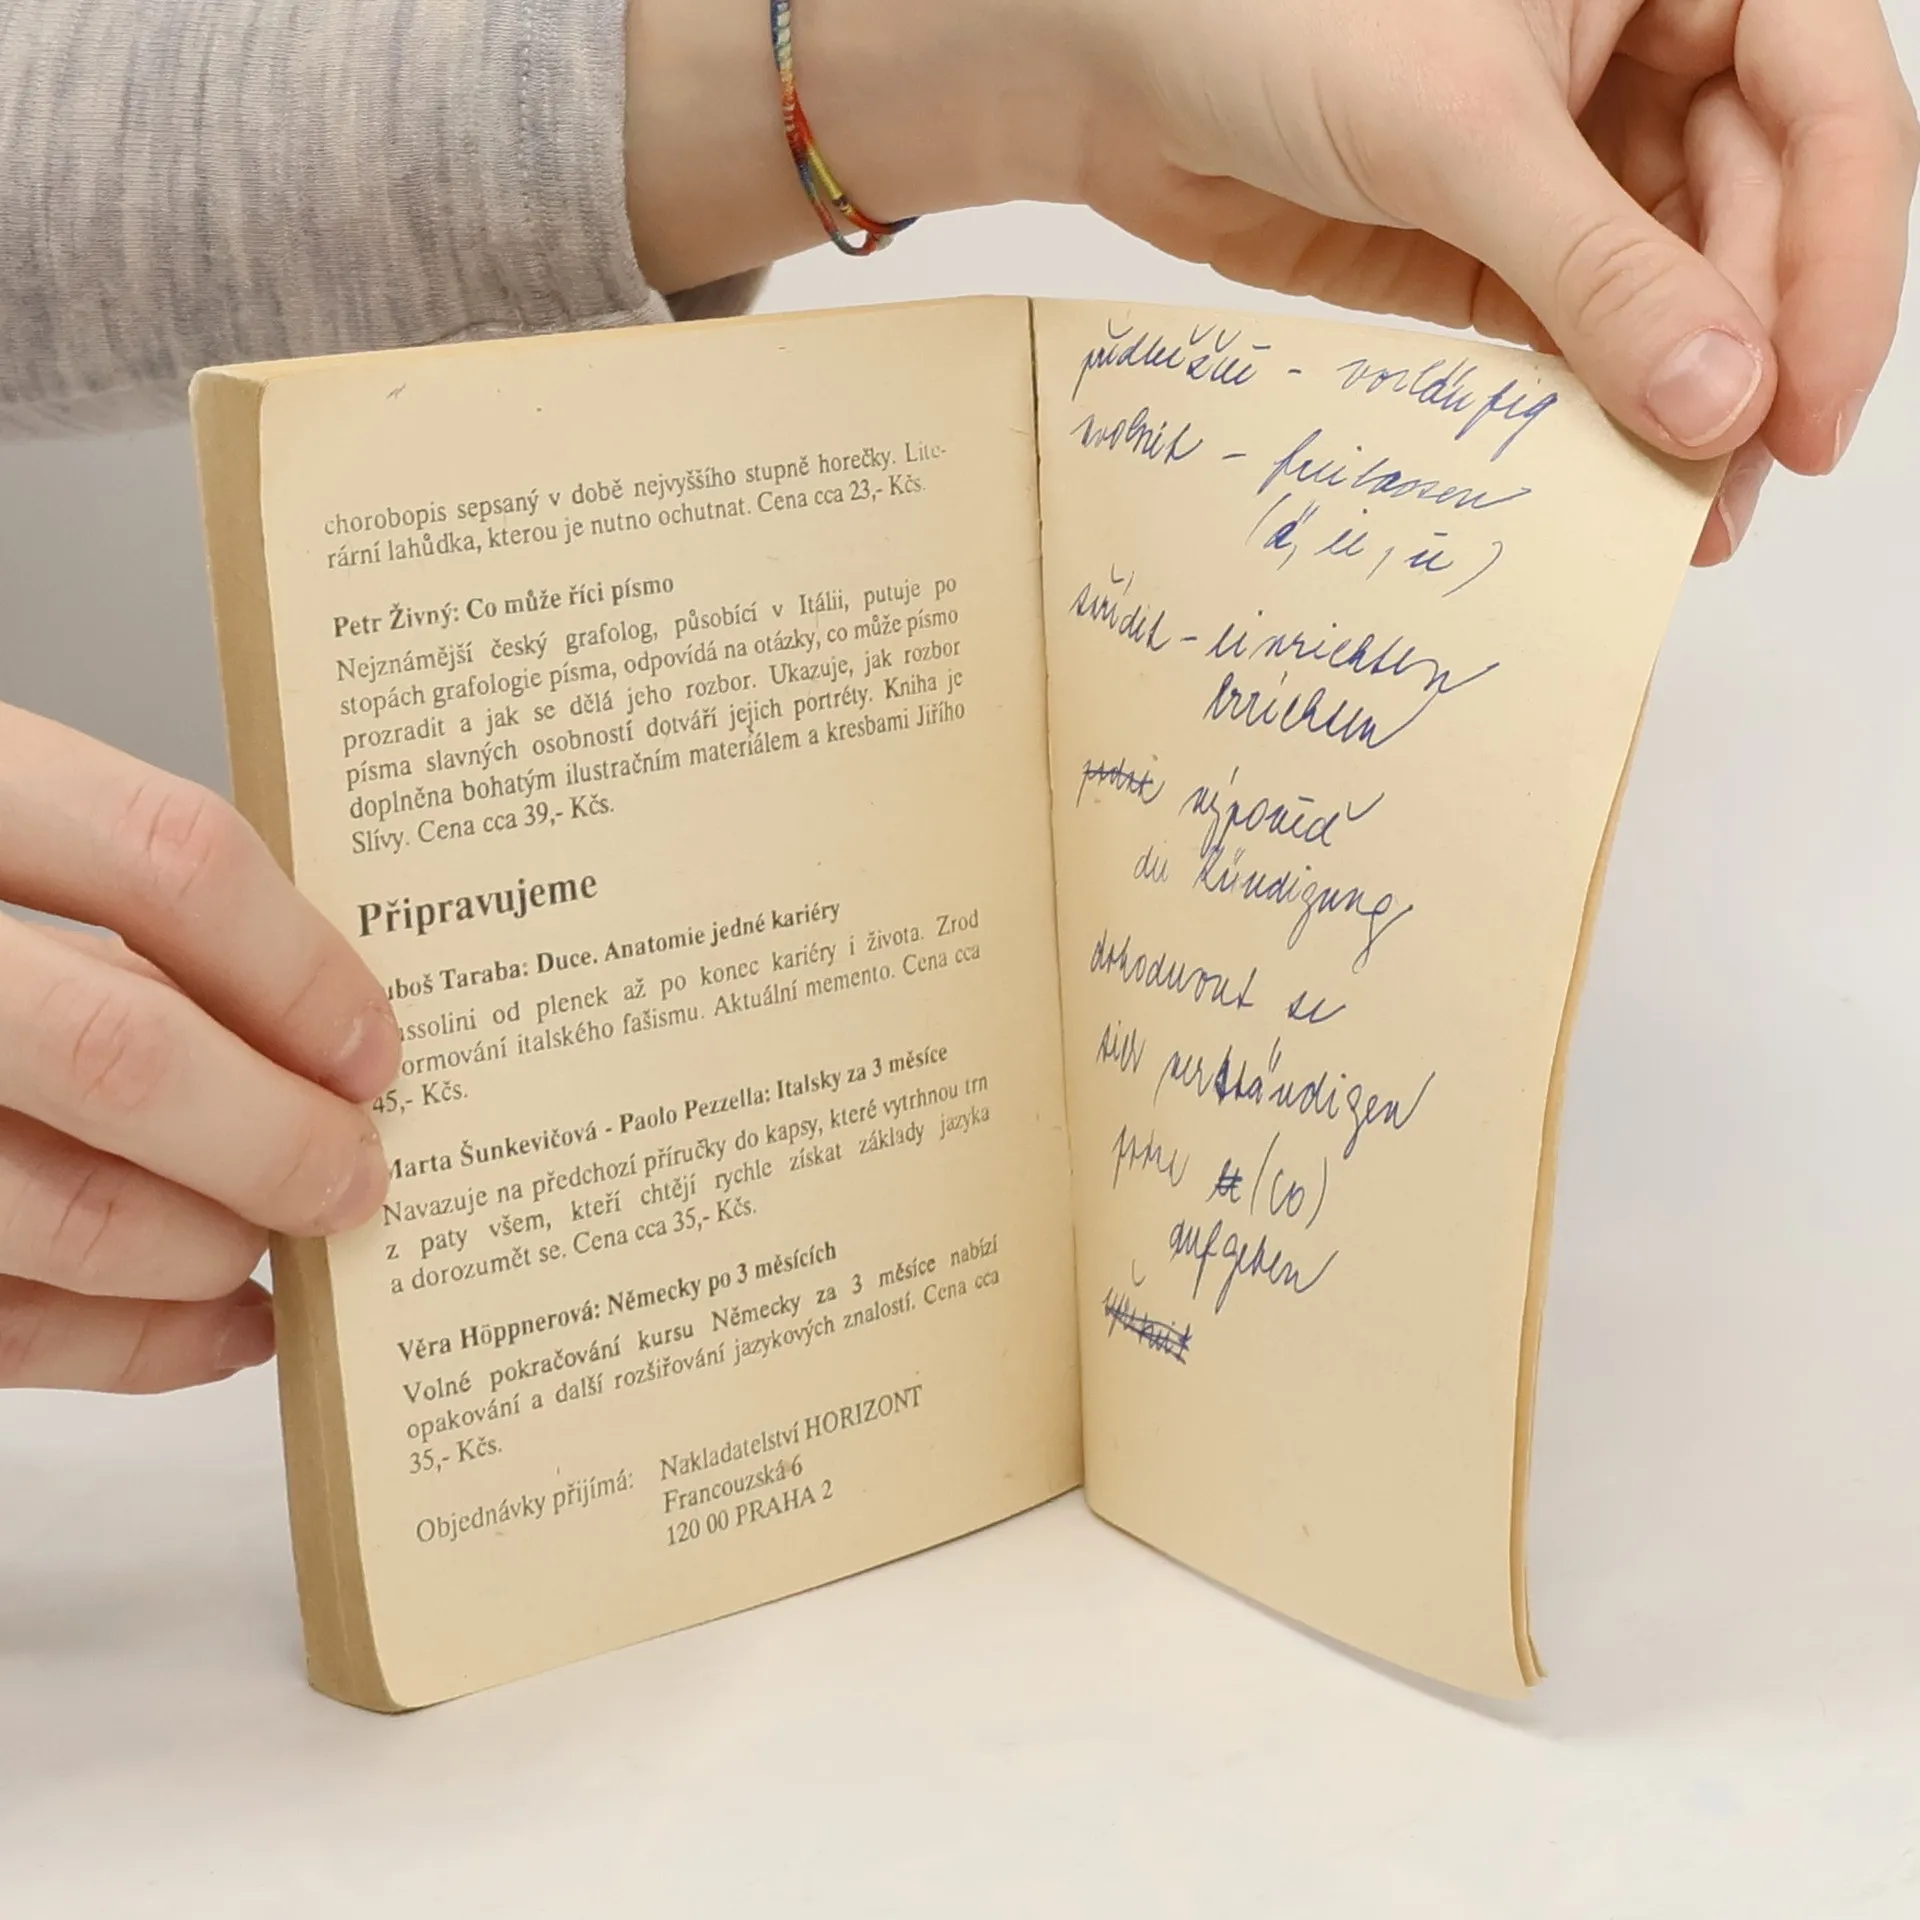 chorobopis sepsaný v době nejvyššího stupně horečky. Lite-
rární lahůdka, kterou je nutno ochutnat. Cena cca 23,- Kčs.
Petr Živný: Co může říci písmo
Nejznámější český grafolog, působící v Itálii, putuje po
stopách grafologie písma, odpovídá na otázky, co může písmo
prozradit a jak se dělá jeho rozbor. Ukazuje, jak rozbor
písma slavných osobností dotváří jejich portréty. Kniha je
doplněna bohatým ilustračním materiálem a kresbami Jiřího
Slívy. Cena cca 39,- Kčs.
Připravujeme
uboš Taraba: Duce. Anatomie jedné kariéry
ssolini od plenek až po konec kariéry i života. Zrod
ormování italského fašismu. Aktuální memento. Cena cca
45,- Kčs.
Marta Šunkevičová - Paolo Pezzella: Italsky za 3 měsíce
Navazuje na předchozí příručky do kapsy, které vytrhnou trn
z paty všem, kteří chtějí rychle získat základy jazyka
a dorozumět se. Cena cca 35,- Kčs.
Věra Höppnerová: Německy po 3 měsících
Volné pokračování kursu Německy za 3 měsíce nabízí
opakování a další rozšiřování jazykových znalostí. Cena cca
35,- Kčs.
Objednávky přijímá: Nakladatelství HORIZONT
Francouzská 6
120 00 PRAHA 2
předběžně - vorläufig
uvolnit - freilassen
(ä, ü, ü)
zřídit - einrichten
errichten
výpověď
die Kündigung
dohodnout se
sich verständigen
(co)
aufgeben